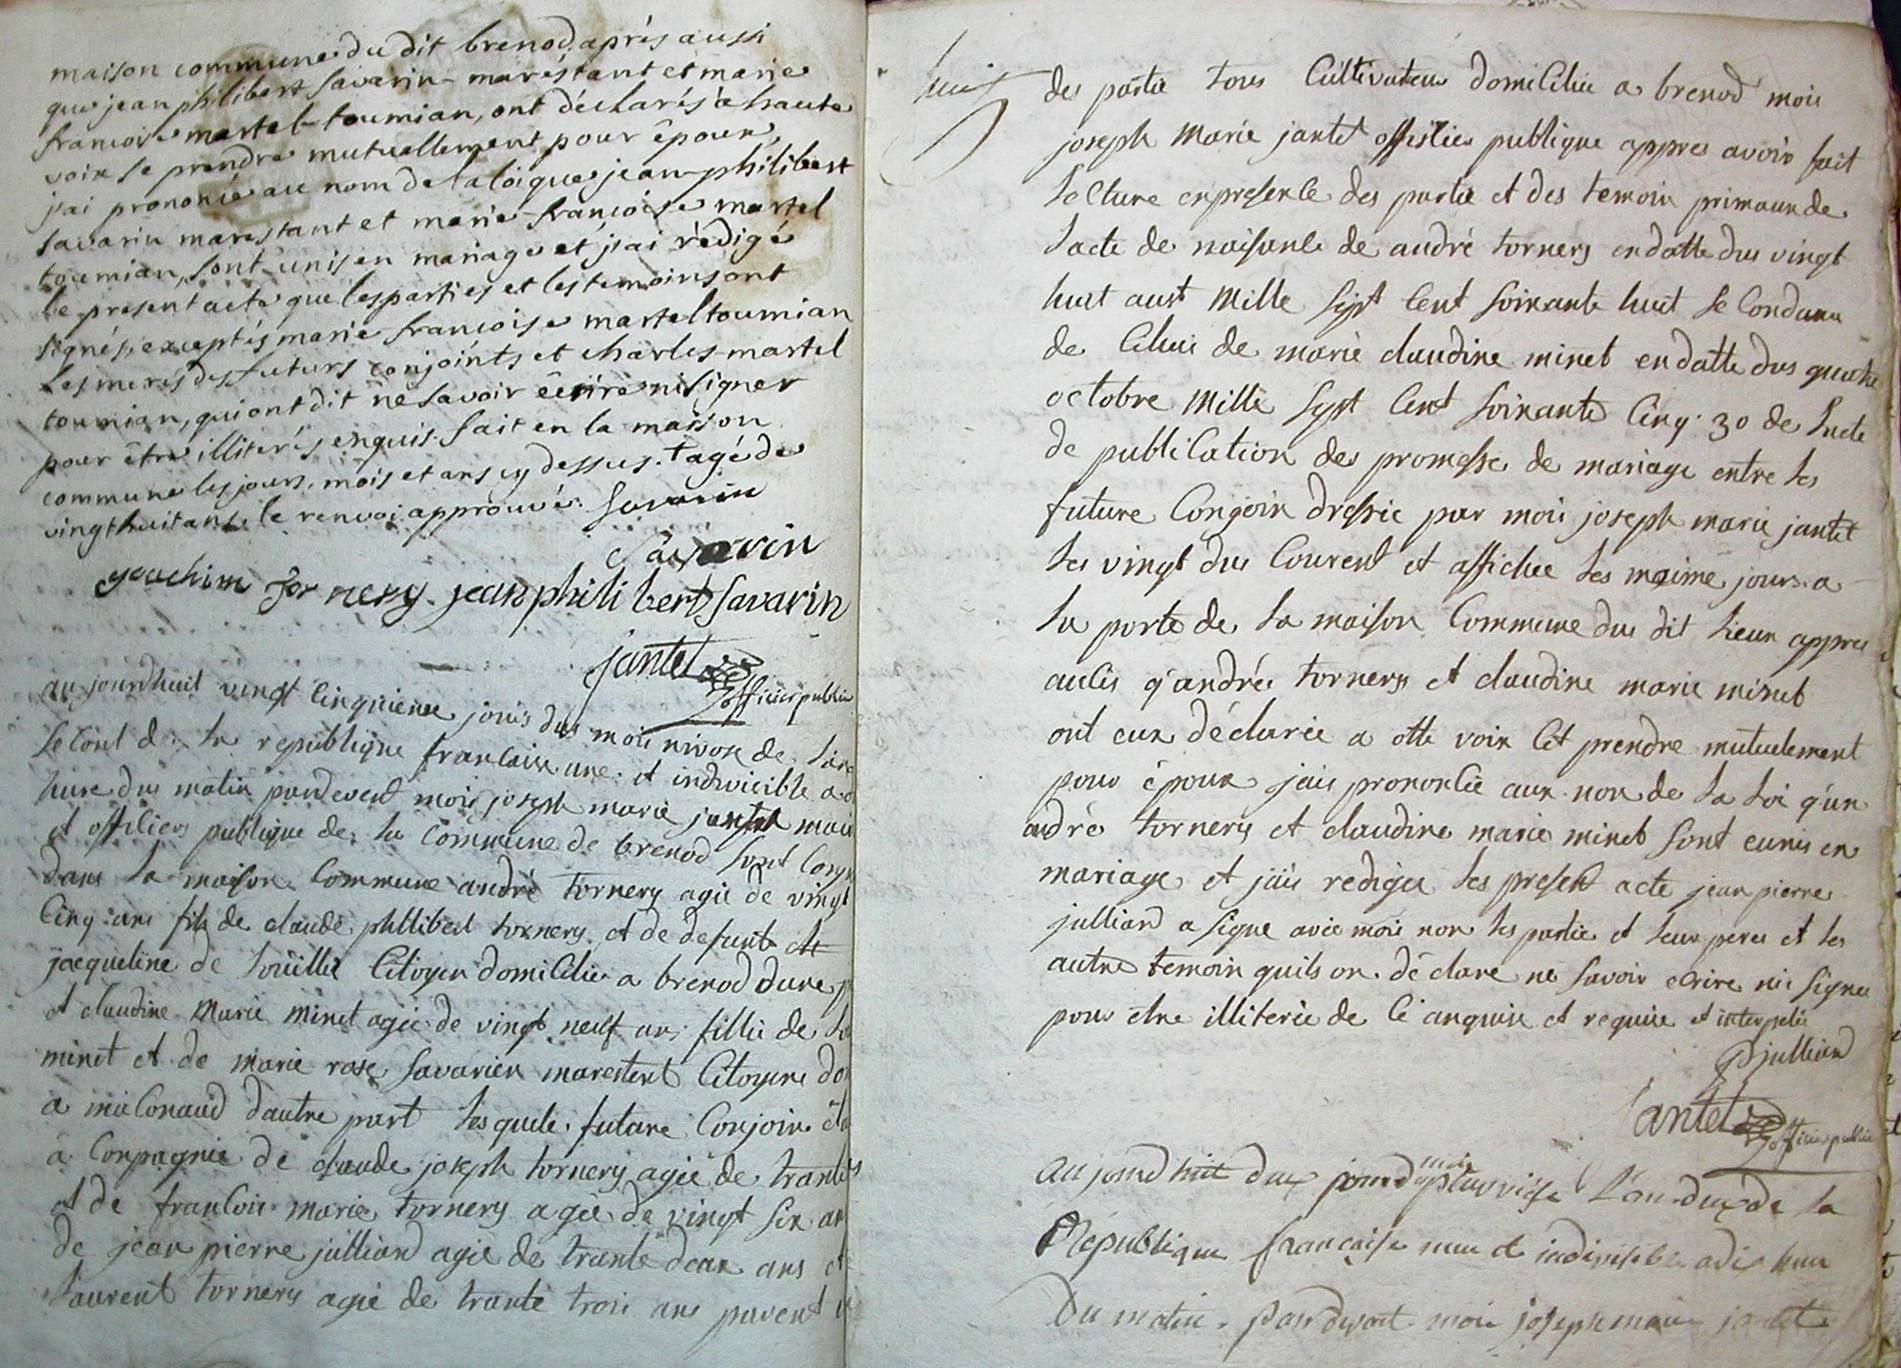 maison commune du dit brenod, après aussi
que jean philibert savarin-maréstant et marie
francoise martel-toumian, ont déclarés à haute
voix se prendre mutuellement pour époux,
j'ai prononcé au nom de la loi que jean-philibert
savarin marestant et marie-francoise martel
toumian, sont unis en mariage et j'ai rédigé
le present acte que les parties et les temoins ont
signés, exceptés marie francoise martel toumian
les meres des futurs conjoints et charles-martel
toumian, qui ont dit ne savoir écrire ni signer
pour être illiterés enquis. fait en la maison
commune les jours, mois et ans cy dessus. tagé de
vingt huit ans, le renvoi approuvé. Savarin
Savarin
joachim tornery. jean philibert Savarin
jantet
officier public
au jourdhuit vingt cinquieme jouis dus mois nivose de lan
second de la republique francaise une et indivicible a
hure dus matin pardevent mois joseph marie jantet mair
et officiers publique de la commune de brenod sont
dans la maison commune andré tornery agie de vingt
cinq ans fils de claude phllibert tornery et de defunte
jacqueline de Citoyen domicilie a brenod dune
et claudine Marie minet agie de vingt neuf ans fillie de
minet et de marie rose savarien marestent Citoyens
a dautre part lesquele future Conjoin
a Conpagnie de claude joseph tornery agie de trante
et de francois marie tornery agie de vingt six an
de jean pierre julliard agie de trante deux ans et
laurent tornery agie de trante trois ans parent
huit
des partie tous Cultivateur domicilie a brenod mois
joseph Marie jantet officie publique appres avoir fait
lecture enpresence des partie et des temoin
lacte de naisance de andré tornery endatte dus vingt
huit aust Mille sept Cent soixante huit
de Celui de marie claudine minet endatte dus quatre
octobre Mille sept Cent soixante Cinq 30 de lacte
de publication des promesse de mariage entre les
future Congoin dressie par mois joseph marie jantet
les vingt dus Courent et affichee les maime jours a
la porte de la maison Commune dus dit lieux appres
aussis q'andrée tornery et claudine marie minet
ont eux déclarée a otte voix Cet prendre mutuelement
pour époux jais prononcée aux non de la loi q'un
andré tornery et claudine marie minet sont eunis en
mariage et jais redigee les present acte jean pierre
julliard a signe avec mois non les partie et leur peres et les
autre temoin quils on déclare ne savoir ecrire nis signer
pour etre illiterie de Ce anquise et requise et interpelés
Pjulliard
Jantet
officier public
au jourd huit dux jour du moi pluvvise l'an dux de la
République francaise une et indivisible a dix heur
Du matin. Par devant moi joseph marie jantet